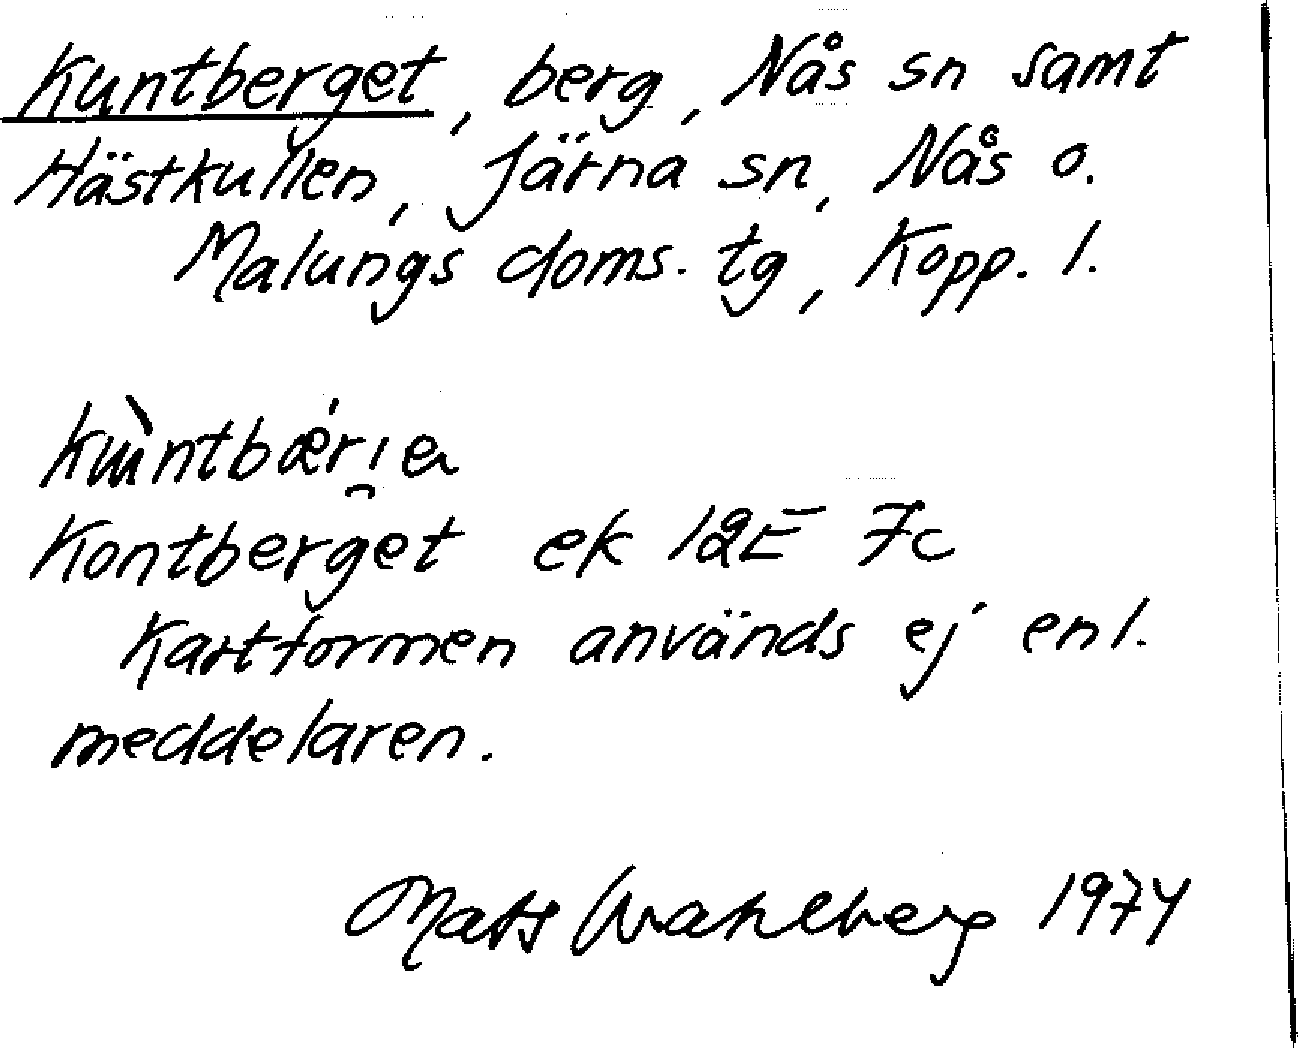 Kuntberget, berg, Nås sn samt
Hästkullen, Järna sn, Nås o.
Malungs doms. tg, Kopp. l.
Kontberget ek 12E 7c
Kartformen används ej enl.
meddelaren.
Mats Wahlberg 1974